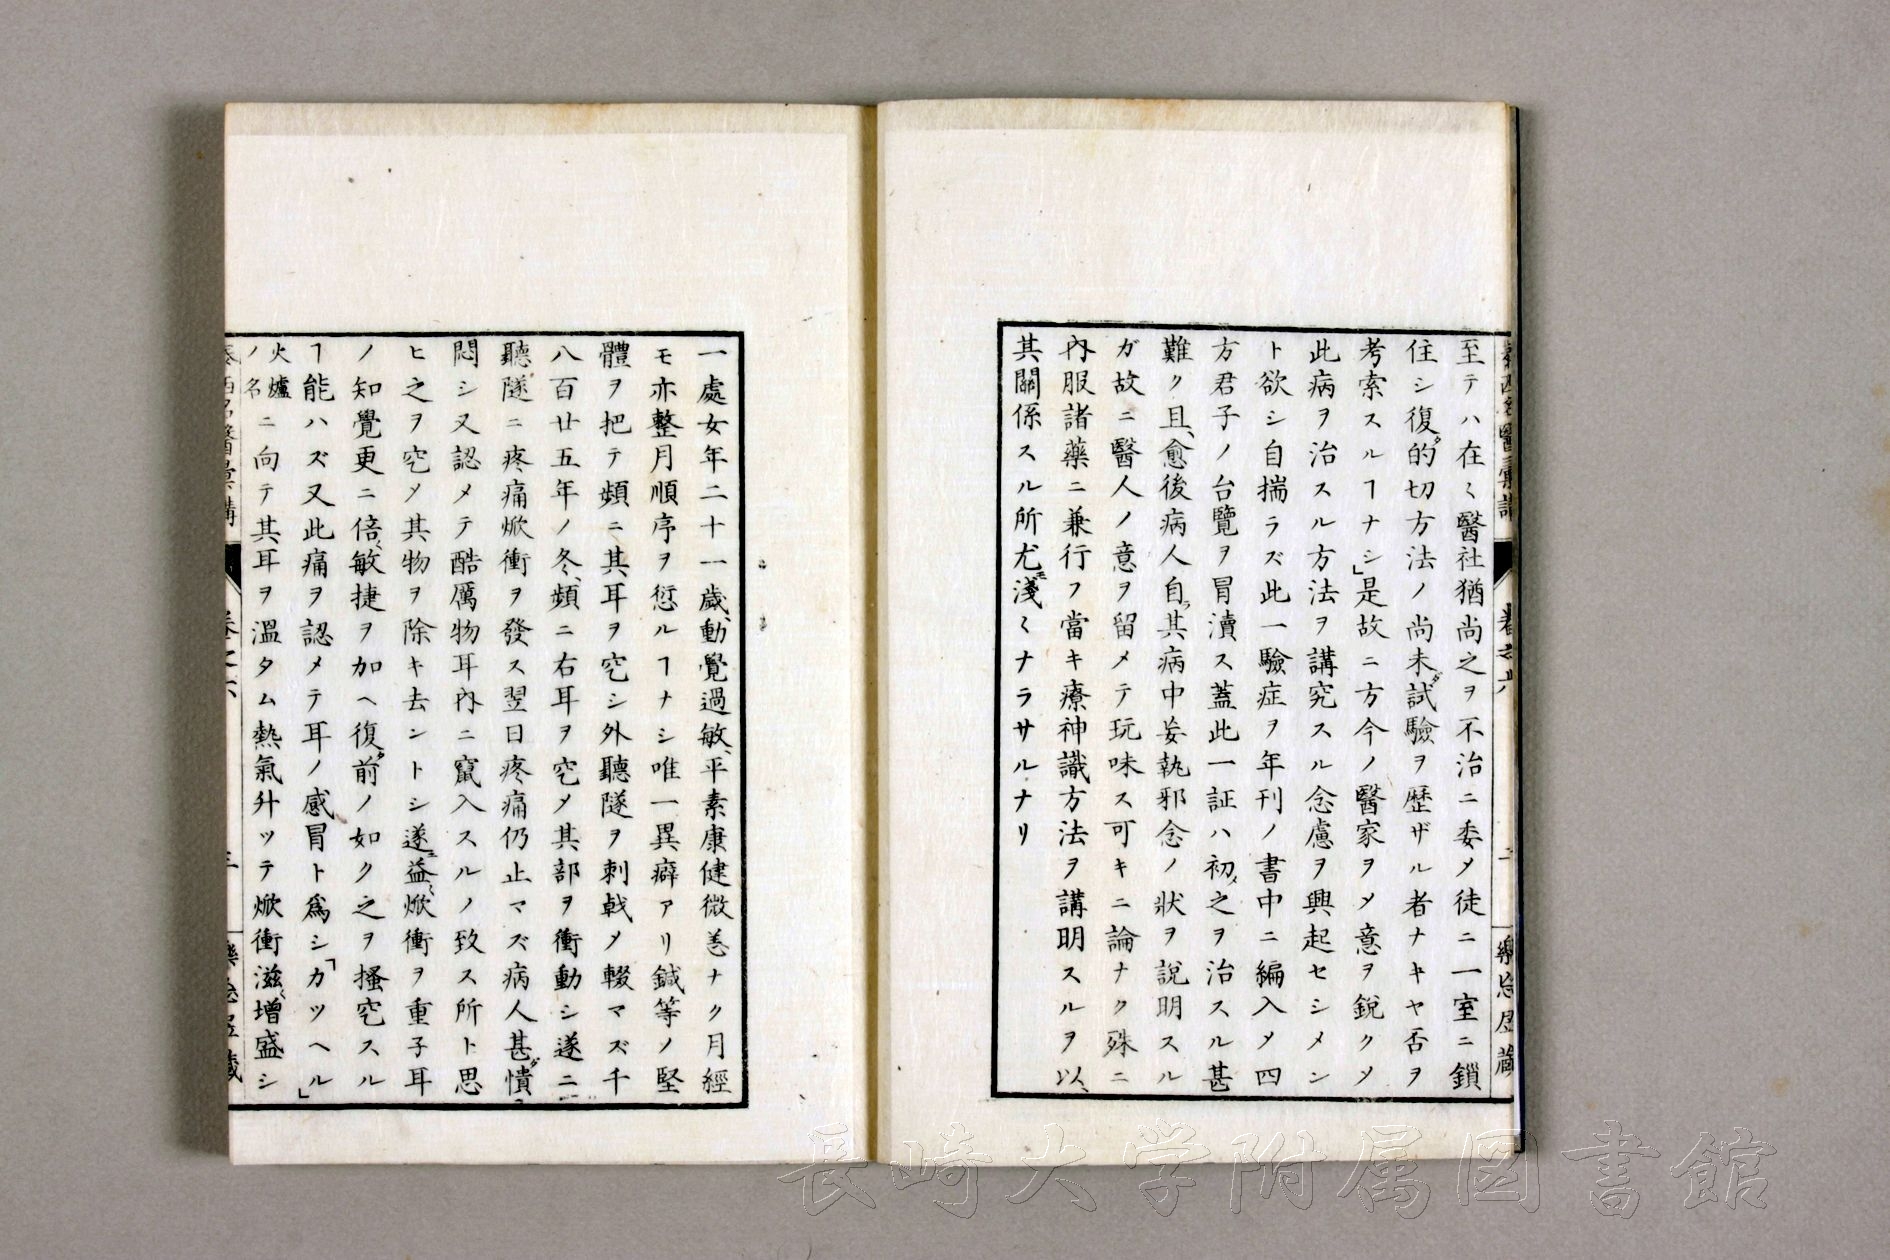 至テハ在〻醫社猶尚之ヲ不治ニ委〆徒ニ一室ニ鎖
住シ復タ的切方法ノ尚未ダ試驗ヲ歴ザル者ナキヤ否ヲ
考索スルヿナシ」是故ニ方今ノ醫家ヲ〆意ヲ銳ク〆
此病ヲ治スル方法ヲ講究スル念慮ヲ興起セシメン
ト欲シ自揣ラズ此一驗症ヲ年刊ノ書中ニ編入〆四
方君子ノ台覽ヲ冒瀆ス蓋此一証ハ初メ之ヲ治スル甚
難ク且、愈後病人自ラ其病中妄執邪念ノ狀ヲ說明スル
ガ故ニ醫人ノ意ヲ留メテ玩味ス可キニ論ナク殊ニ
內服諸藥ニ兼行フ當キ療神識方法ヲ講明スルヲ以、
其關係スル所尤モ淺〻ナラサルナリ
一處女年二十一歲、動覺過敏、平素康健微恙ナク月經
モ亦整月順序ヲ愆ルヿナシ唯一異癖アリ鍼等ノ堅
體ヲ把テ頻ニ其耳ヲ穵シ外聽隧ヲ刺戟〆輟マズ千
八百廿五年ノ冬、頻ニ右耳ヲ穵〆其部ヲ衝動シ遂ニ
聽隧ニ疼痛焮衝ヲ發ス翌日疼痛仍止マズ病人甚ダ憒
悶シ又認メテ酷厲物耳內ニ竄入スルノ致ス所ト思
ヒ之ヲ穵〆其物ヲ除キ去ントシ遂ニ益〻焮衝ヲ重子耳
ノ知覺更ニ倍〻敏捷ヲ加ヘ復タ前ノ如ク之ヲ搔穵スル
ヿ能ハズ又此痛ヲ認メテ耳ノ感冒ト爲シ「カツヘル」
火爐ノ名ニ向テ其耳ヲ溫タム熱氣升ツテ焮衝滋〻增盛シ
卷之六
三
長崎大学附属図書館